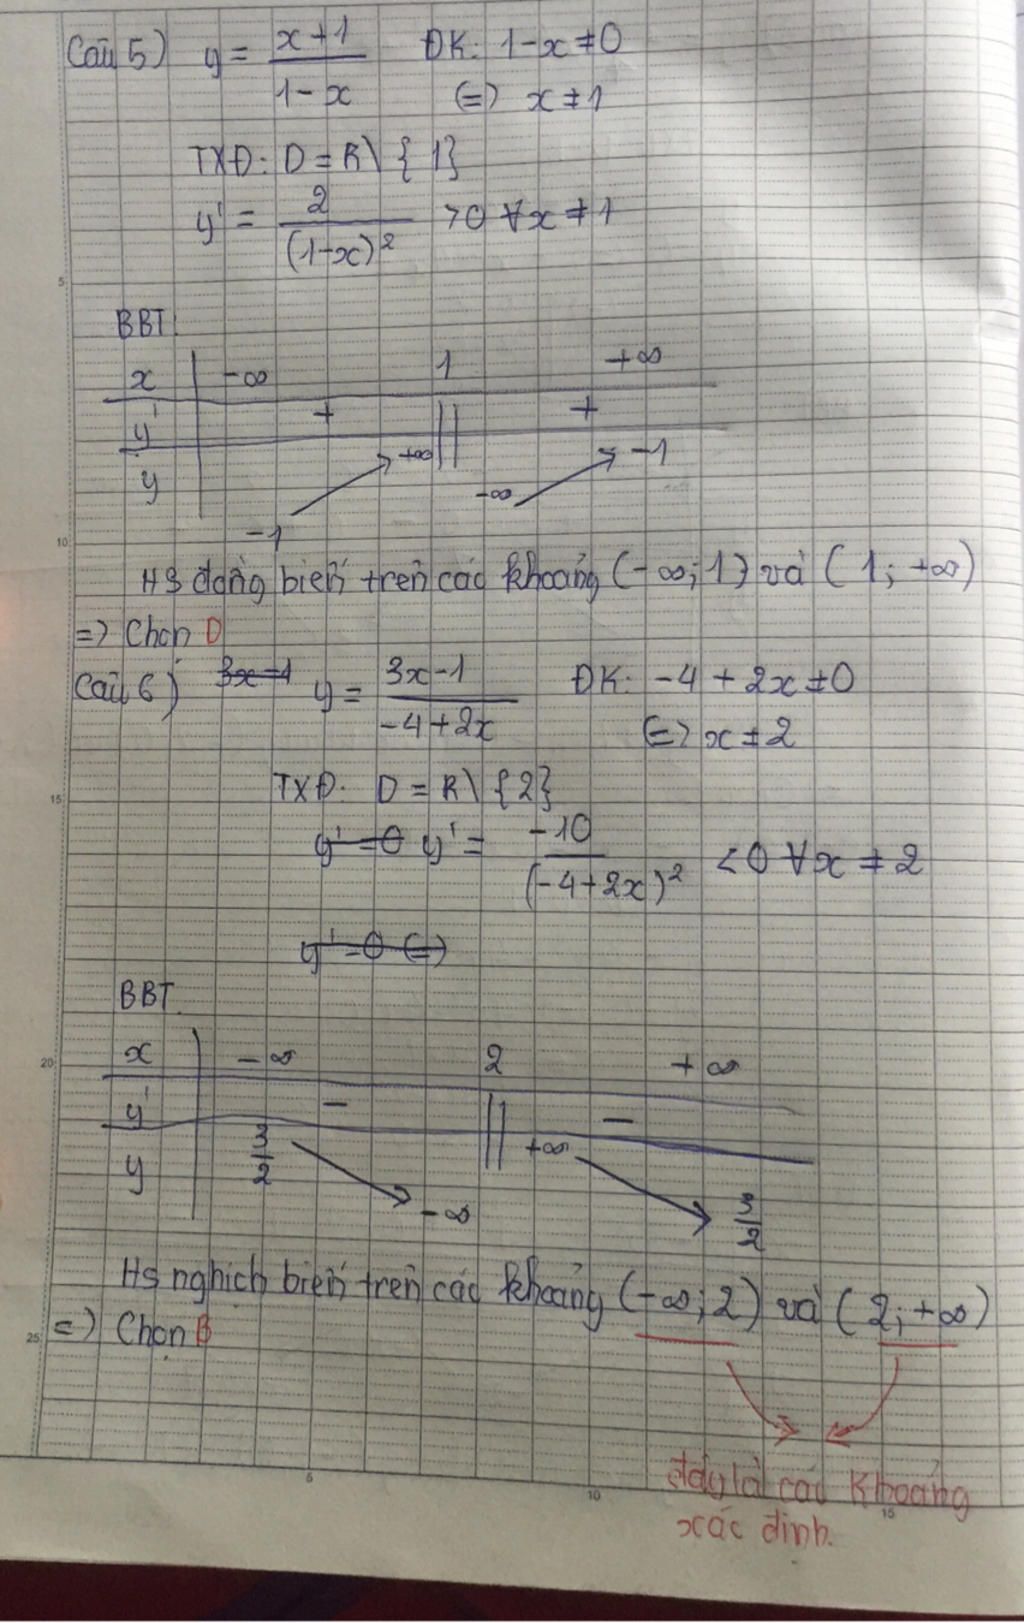 Câu 5) y = x+1 / 1-x ĐK: 1-x ≠ 0
(=) x ≠ 1
TXĐ: D = R \ { 1}
y' = 2 / (1-x)² >0 ∀x ≠ 1
5
BBT
x -∞ 1 +∞
y' + || +
y -1 +∞ || -∞ -1
10
HS đồng biến trên các khoảng (-∞; 1) và ( 1; +∞)
=) Chọn D
Câu 6) 3x-1 y = 3x-1 / -4+2x ĐK: -4 + 2x ≠ 0
(=) x ≠ 2
15
TXĐ: D = R \ {2}
y' = 0 y' = -10 / (-4+2x)² <0 ∀x ≠ 2
y' = 0 (=)
BBT
20
x -∞ 2 +∞
y' - || -
y 3/2 -∞ || +∞ 3/2
Hs nghịch biến trên các khoảng (-∞; 2) và ( 2; +∞)
25
=) Chọn B
đây là các khoảng
xác định.
5 10 15